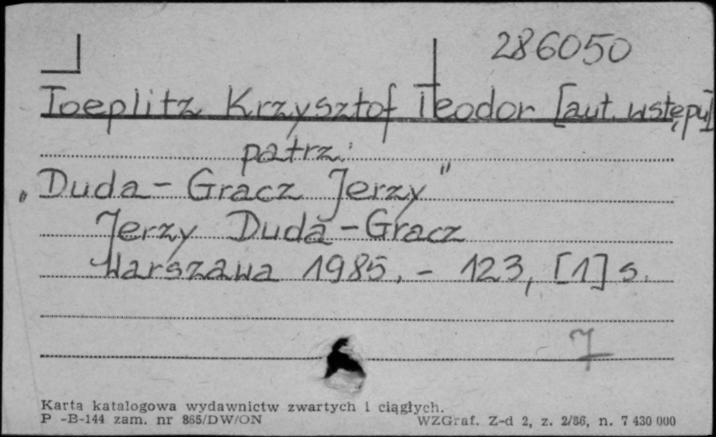 286050
Toeplitz Krzysztof Teodor [aut. wstępu]
patrz:
„Duda-Gracz Jerzy"
Jerzy Duda-Gracz
Warszawa 1985. - 123, [1] s.
7
Karta katalogowa wydawnictw zwartych i ciągłych.
P -B-144 zam. nr 865/DW/ON WZGraf. Z-d 2, z. 2/86, n. 7 430 000